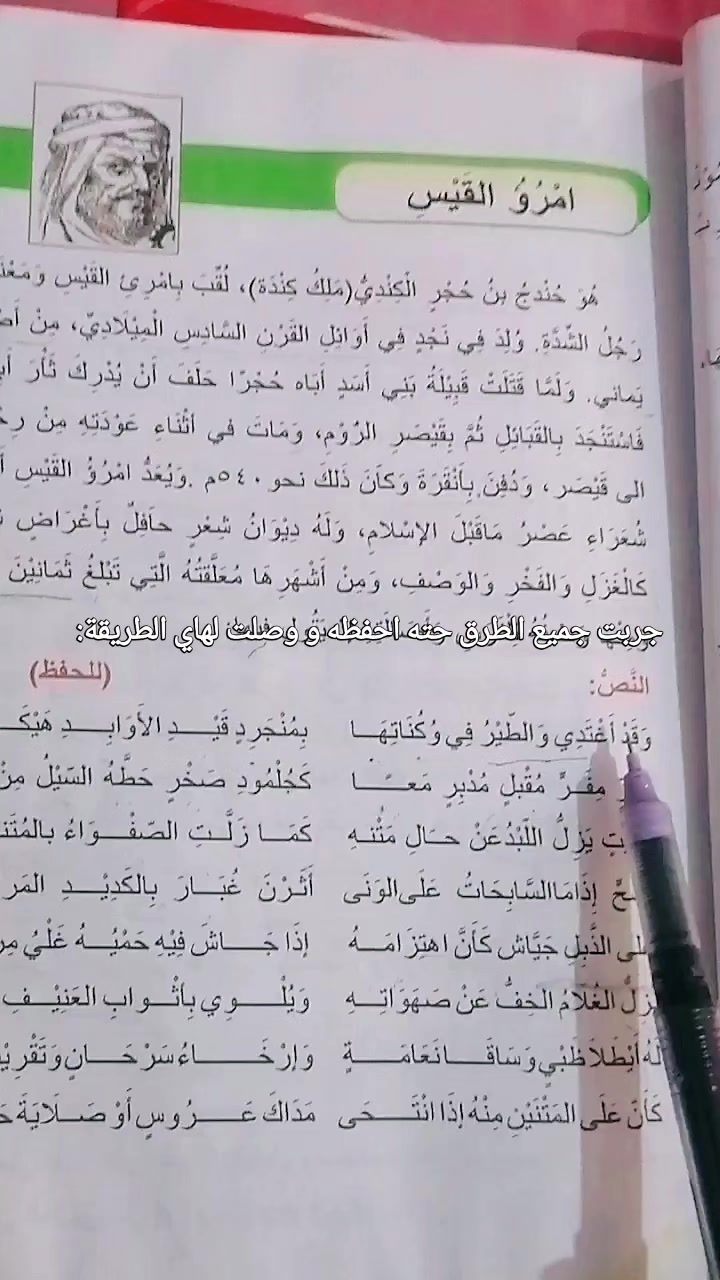 امْرُؤُ القَيْسِ
هُوَ حُنْدجُ بنُ حُجْرٍ الْكِنْدِيُّ(مَلِكُ كِنْدَة)، لُقِّبَ بِامْرِئِ القَيْسِ
رَجُلُ الشِّدَّةِ. وُلِدَ فِي نَجْدٍ فِي أَوَائِلِ القَرْنِ السَّادِسِ الْمِيْلَادِيِّ، مِنْ
يَماني. وَلَمَّا قَتَلَتْ قَبِيْلَةُ بَنِي أَسَدٍ أَبَاه حُجْرًا حَلَفَ أَنْ يُدْرِكَ ثَأْرَ
فَاسْتَنْجَدَ بِالقَبَائِلِ ثُمَّ بِقَيْصَرِ الرُّوْمِ، وَمَاتَ في أَثْنَاءِ عَوْدَتِهِ مِنْ
الى قَيْصَر، وَدُفِنَ بِأَنْقَرَةَ وَكَانَ ذَلكَ نحو ٥٤٠م .وَيُعَدُّ امْرُؤُ القَيْسِ
شُعَرَاءِ عَصْرُ مَاقَبْلَ الإسْلامِ، وَلَهُ دِيْوَانُ شِعْرٍ حَافِلٌ بِأَغْرَاضٍ
كَالْغَزَلِ وَالفَخْرِ وَالوَصْفِ، وَمِنْ أَشْهَرِ هَا مُعَلَّقَتُهُ الَّتِي تَبْلغُ ثَمَانِيْنَ
جربت جميع الطرق حته احفظه و وصلت لهاي الطريقة:
النَّصُّ: (للحفظ)
وَقَدْ أَغْتَدِي وَالطَّيْرُ فِي وُكُنَاتِهَا بِمُنْجَردٍ قَيْدِ الأَوَابِدِ
مِفَرٍّ مُقْبلٍ مُدْبِرٍ مَعًا كَجُلْمُودِ صَخْرٍ حَطَّهُ السَّيْلُ
يَزِلُّ اللّبْدُ عَنْ حَالِ مَتْنهِ كَمَا زَلَّتِ الصَّفْوَاءُ
إذَا مَا السَّابِحَاتُ عَلَى الوَنَى أَثَرْنَ غُبَارَ بِالكَدِيْدِ
الذَّبلِ جَيَّاش كَأَنَّ اهتِزَامَهُ إذَا جَاشَ فِيْهِ حَمْيُهُ غَلْيُ
الغُلَامُ الخِفُّ عَنْ صَهَوَاتِهِ وَيُلْوِي بِأَثْوَابِ العَنِيْفِ
لَهُ أَيْطَلَا ظَبْي وَسَاقَا نَعَامَةٍ وَإِرْخَاءُ سَرْحَانٍ
كَأَنَّ عَلَى المَتْنَيْنِ مِنْهُ إذَا انْتَحَى مَدَاكَ عَرُوسٍ أَوْ صَلَايَةَ